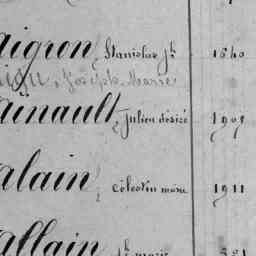 aigron, Stanislas Jh 1540
Joseph Marie
ainault, Julien désiré 1909
alain, Célestin marie 1911
allain, Jh marie 521